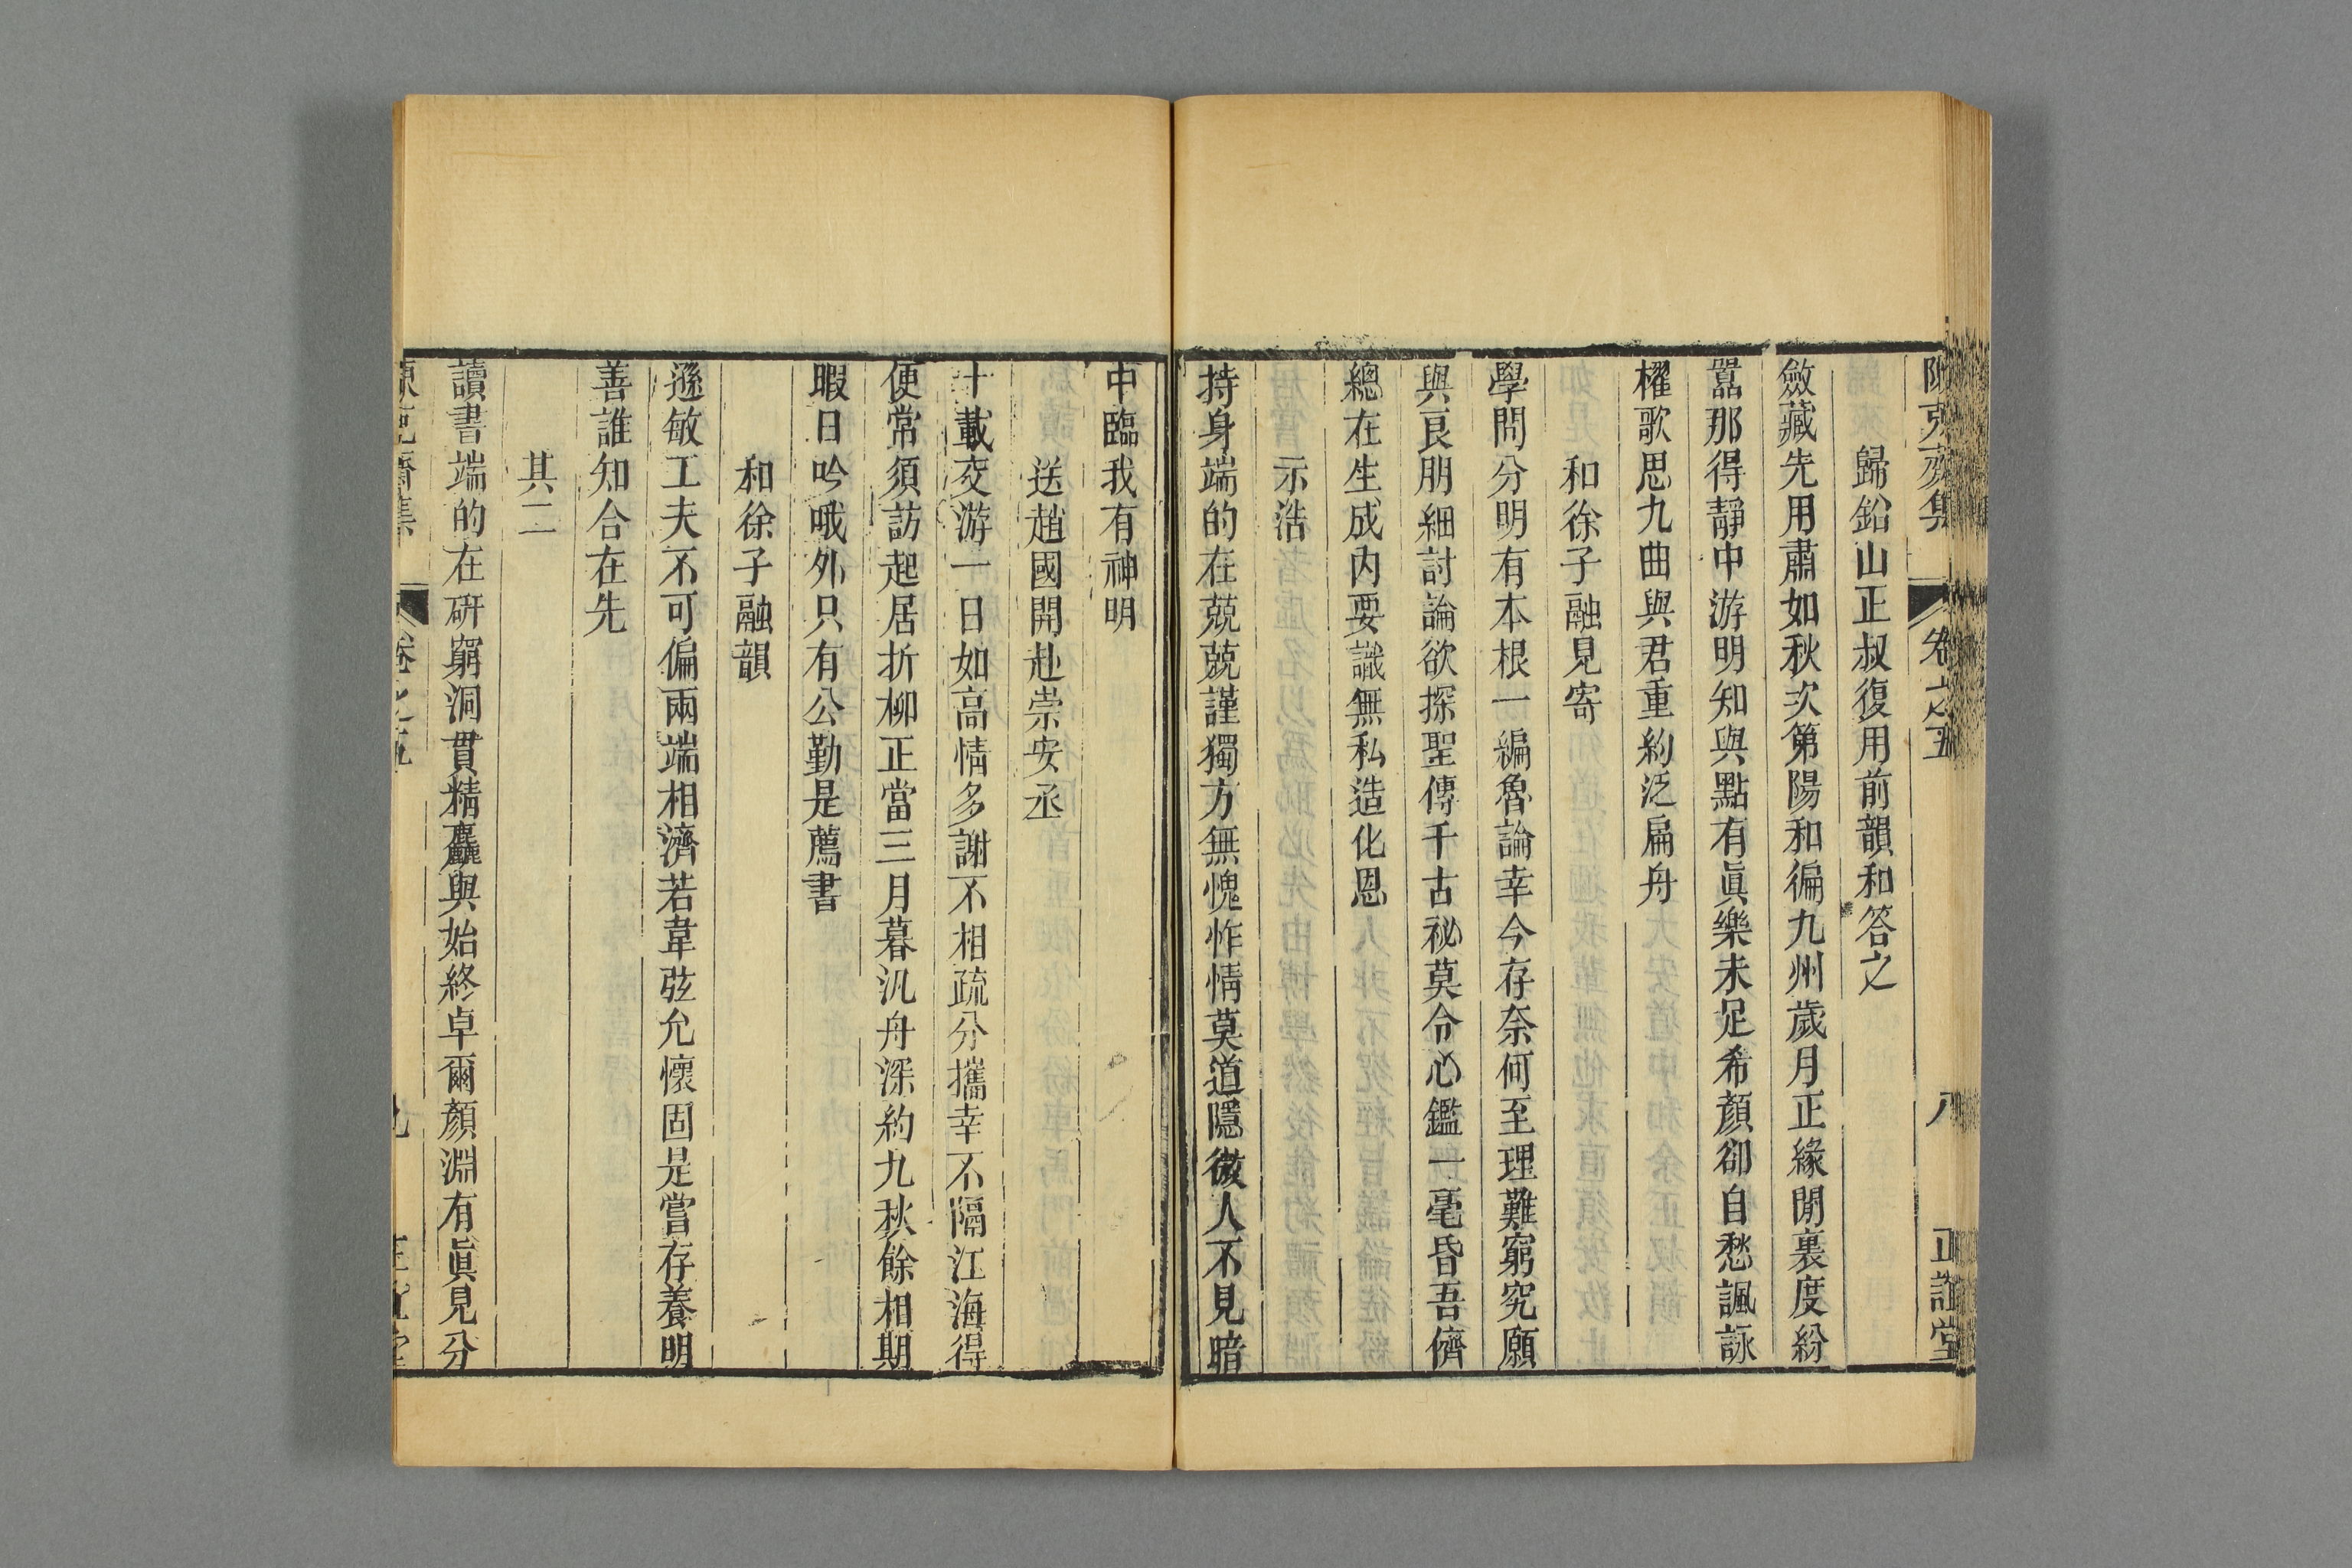 陳克齋集 卷之五 八 正誼堂
歸鉛山正叔復用前韻和答之
斂藏先用肅如秋次第陽和徧九州歲月正緣閒裏度紛
囂那得靜中游明知與點有眞樂未足希顏卻自愁諷詠
櫂歌思九曲與君重約泛扁舟
和徐子融見寄
學問分明有本根一編魯論幸今存奈何至理難窮究願
與良朋細討論欲探聖傳千古祕莫令心鑑一毫昏吾儕
總在生成內要識無私造化恩
示浩
持身端的在兢兢謹獨方無愧怍情莫道隱微人不見暗
中臨我有神明
送趙國開赴崇安丞
十載交游一日如高情多謝不相疏分攜幸不隔江海得
便常須訪起居折柳正當三月暮汎舟深約九秋餘相期
暇日吟哦外只有公勤是薦書
和徐子融韻
遜敏工夫不可偏兩端相濟若韋弦允懷固是嘗存養明
善誰知合在先
其二
讀書端的在硏窮洞貫精麤與始終卓爾顏淵有眞見分